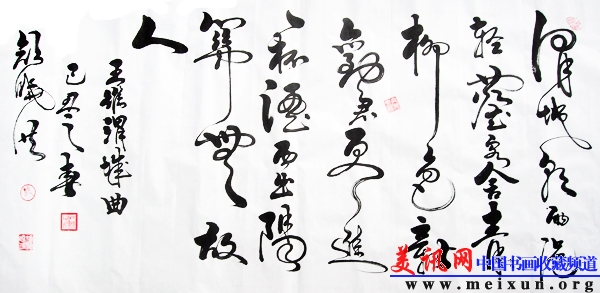 渭城朝雨浥
輕塵客舍青青
柳色新
勸君更進
一杯酒西出陽
關無故
人
王維渭城曲
己丑之春
美讯网
中国书画收藏频道
www.meixun.org